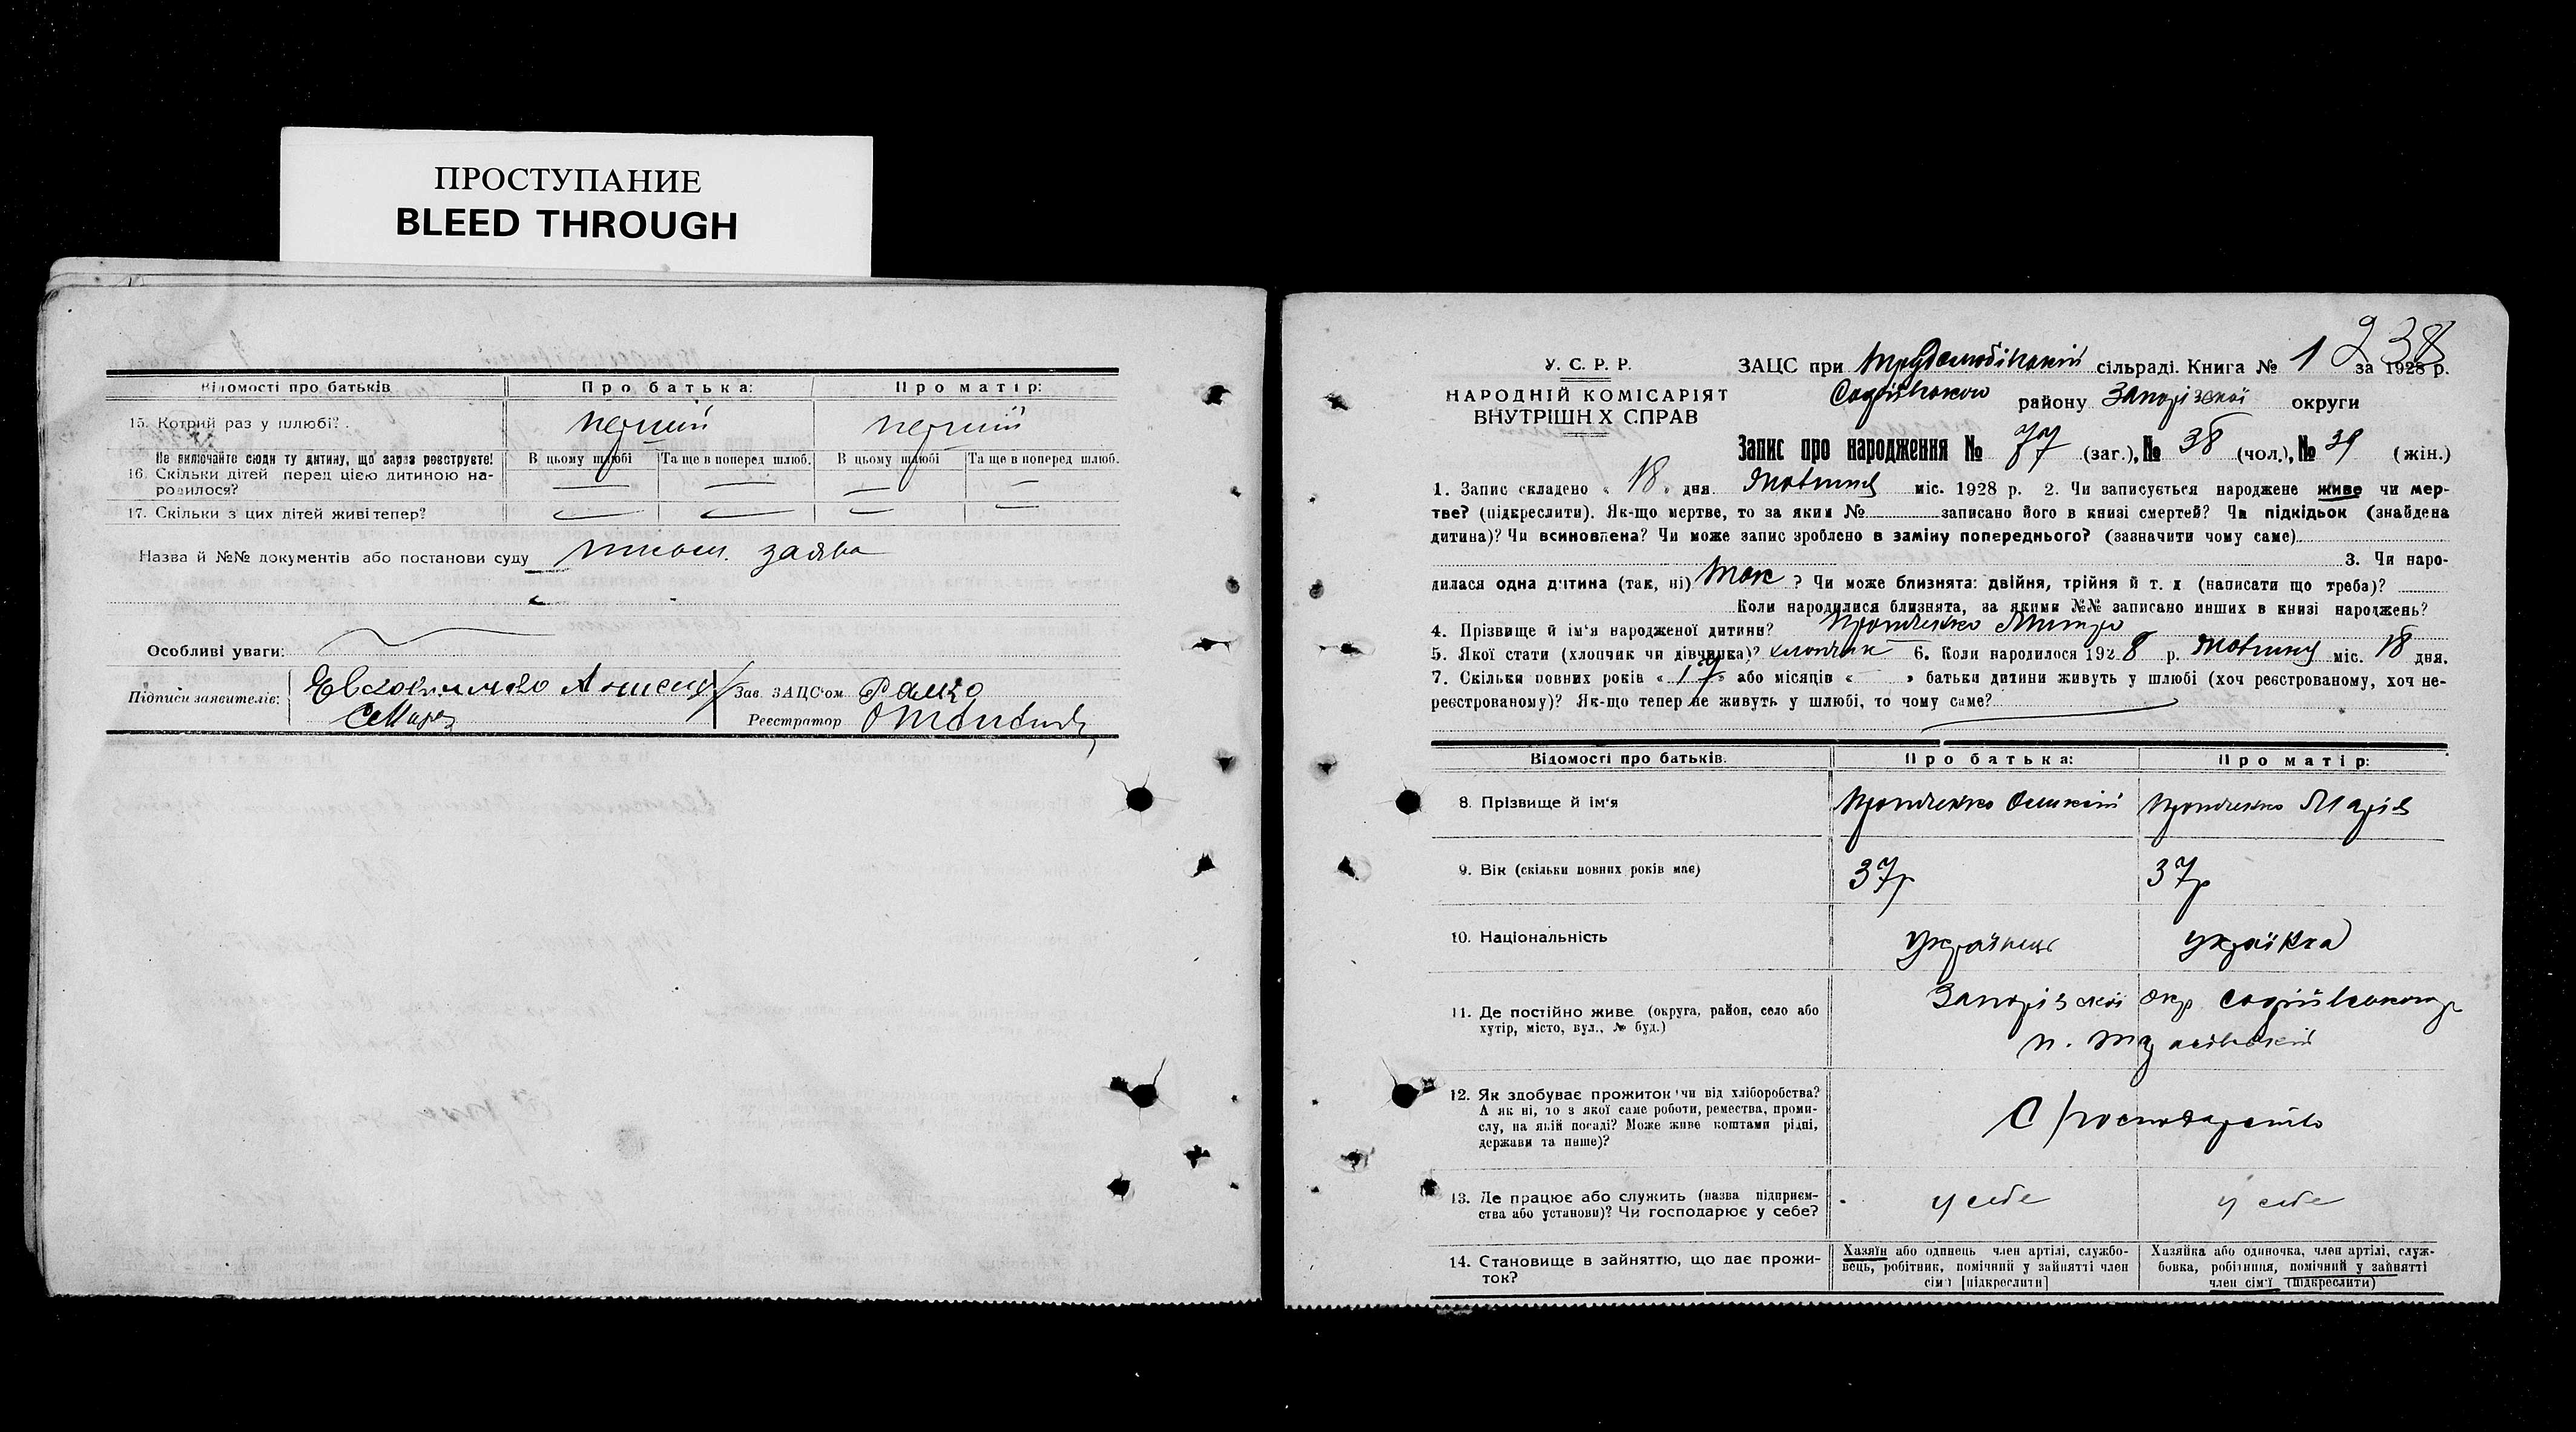 ПРОСТУПАНИЕ
BLEED THROUGH
Відомості про батьків Про батька: Про матір:
15. Котрий раз у шлюбі? перший перший
Не включайте сюди ту дитину, що зараз реєструєте! В цьому шлюбі Та ще в поперед шлюб. В цьому шлюбі Та ще в поперед шлюб.
16. Скільки дітей перед цією дитиною на-
родилося? — — — —
17. Скільки з цих дітей живі тепер? — — — —
Назва й №№ документів або постанови суду заява
Особливі уваги:
Підписи заявителів: Зав. ЗАЦС'ом
Реєстратор
238
У. С. Р. Р.
НАРОДНІЙ КОМІСАРІЯТ
ВНУТРІШН Х СПРАВ
ЗАЦС при сільраді. Книга № 1 за 1928 р.
Софіївського району Запорізської округи
Запис про народження № 77 (заг.), № 38 (чол.), № 39 (жін.)
1. Запис складено « 18 » дня жовтня міс. 1928 р. 2. Чи записується народжене живе чи мер-
тве? (підкреслити). Як-що мертве, то за яким № записано його в книзі смертей? Чи підкідьок (знайдена
дитина)? Чи всиновлена? Чи може запис зроблено в заміну попереднього? (зазначити чому саме)
3. Чи наро-
дилася одна дитина (так, ні) так ? Чи може близнята: двійня, трійня й т. д (написати що треба)?
Коли народилися близнята, за якими №№ записано инших в книзі народжень?
4. Прізвище й ім'я народженої дитини?
5. Якої стати (хлопчик чи дівчинка)? хлопчик 6. Коли народилося 1928 р. жовтня міс. 18 дня.
7. Скільки повних років « 17 » або місяців « » батьки дитини живуть у шлюбі (хоч реєстрованому, хоч не-
реєстрованому)? Як-що тепер не живуть у шлюбі, то чому саме?
Відомості про батьків. Про батька: Про матір:
8. Прізвище й ім'я Марія
9. Вік (скільки повних років має) 37р 37р
10. Національність українець українка
11. Де постійно живе (округа, район, село або
хутір, місто, вул., № буд.) Запорізської окр Софіївського р
12. Як здобуває прожиток чи від хліборобства?
А як ні, то з якої саме роботи, ремества, проми-
слу, на якій посаді? Може живе коштами рідні,
держави та инше)? С/господарство
13. Де працює або служить (назва підприєм-
ства або установи)? Чи господарює у себе? у себе у себе
14. Становище в зайняттю, що дає прожи-
ток?
Хазяїн або одинець член артілі, службо-
вець, робітник, помічний у зайнятті член
сім'ї [підкреслити]
Хазяйка або одиночка, член артілі, служ-
бовка, робітниця, помічний у зайнятті
член сім'ї (підкреслити)